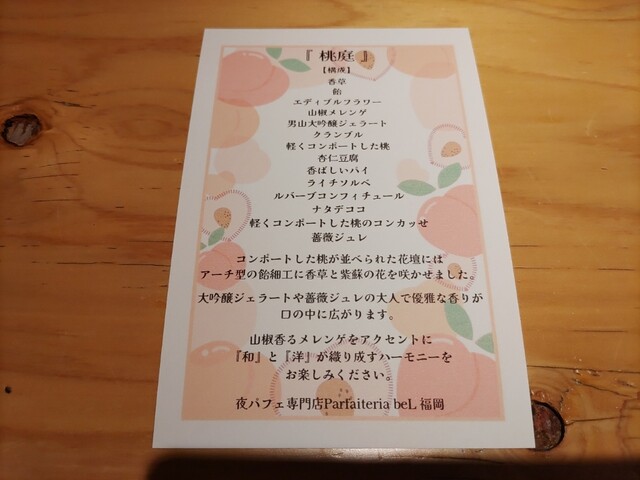 『桃庭』
【構成】
香草
飴
エディブルフラワー
山椒メレンゲ
男山大吟醸ジェラート
クランブル
軽くコンポートした桃
杏仁豆腐
香ばしいパイ
ライチソルベ
ルバーブコンフィチュール
ナタデココ
軽くコンポートした桃のコンカッセ
薔薇ジュレ
コンポートした桃が並べられた花壇には
アーチ型の飴細工に香草と紫蘇の花を咲かせました。
大吟醸ジェラートや薔薇ジュレの大人で優雅な香りが
口の中に広がります。
山椒香るメレンゲをアクセントに
『和』と『洋』が織り成すハーモニーを
お楽しみください。
夜パフェ専門店Parfaiteria beL 福岡